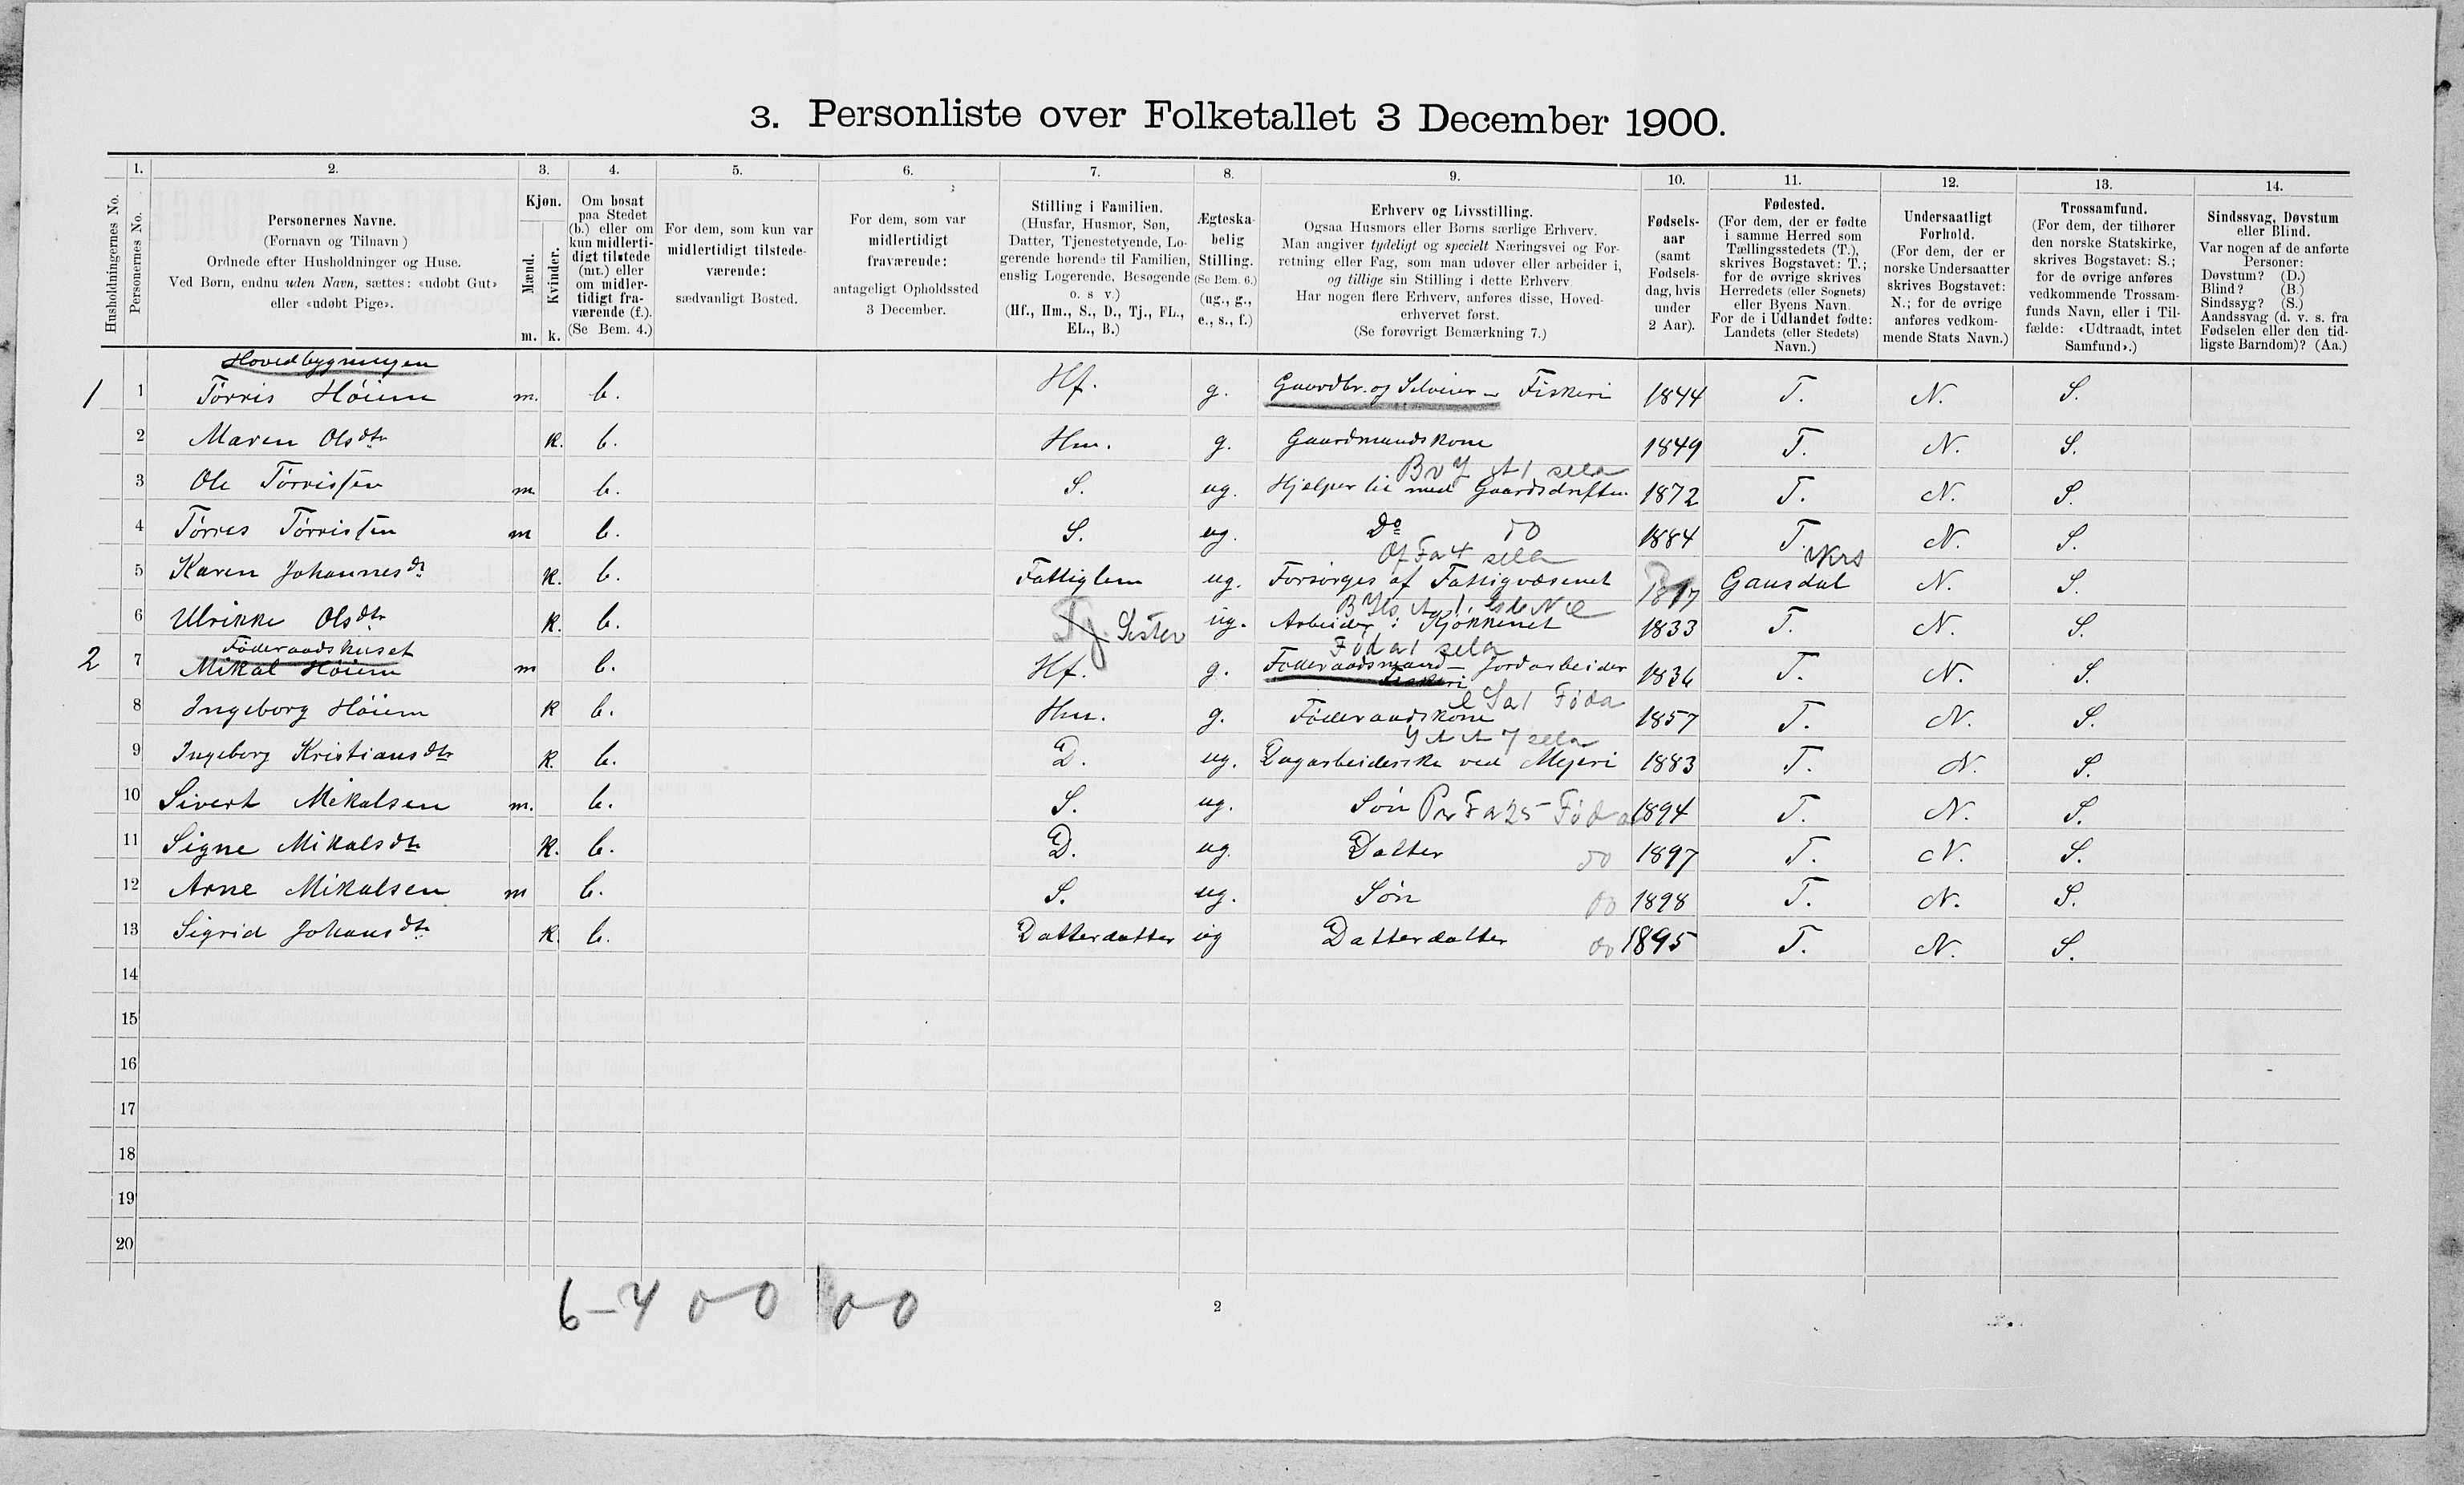 3. Personliste over Folketallet 3 December 1900.
1. 2. 3. 4. 5. 6. 7. 8. 9. 10. 11. 12. 13. 14.
Husholdningernes No.
Personernes No.
Personernes Navne.
(Fornavn og Tilnavn)
Ordnede efter Husholdninger og Huse.
Ved Børn, endnu uden Navn, sættes: «udøbt Gut»
eller «udøbt Pige».
Kjøn.
Mænd.
Kvinder.
m. k.
Om bosat
paa Stedet
(b.) eller om
kun midlerti-
digt tilstede
(mt.) eller
om midler-
tidigt fra-
værende (f.).
(Se Bem. 4.)
For dem, som kun var
midlertidigt tilstede-
værende:
sædvanligt Bosted.
For dem, som var
midlertidigt
fraværende:
antageligt Opholdssted
3 December.
Stilling i Familien.
(Husfar, Husmor, Søn,
Datter, Tjenestetyende, Lo-
gerende hørende til Familien,
enslig Logerende, Besøgende
o. s v.)
(Hf., Hm., S., D., Tj., FL.,
EL., B.)
Ægteska-
belig
Stilling.
(Se Bem. 6.)
(ug., g.,
e., s., f.)
Erhverv og Livsstilling.
Ogsaa Husmors eller Børns særlige Erhverv.
Man angiver tydeligt og specielt Næringsvei og For-
retning eller Fag, som man udøver eller arbeider i,
og tillige sin Stilling i dette Erhverv
Har nogen flere Erhverv, anføres disse, Hoved-
erhvervet først.
(Se forøvrigt Bemærkning 7.)
Fødsels-
aar
(samt
Fødsels-
dag, hvis
under
2 Aar).
Fødested.
(For dem, der er fødte
i samme Herred som
Tællingsstedets (T.),
skrives Bogstavet: T.;
for de øvrige skrives
Herredets (eller Sognets)
eller Byens Navn
For de i Udlandet fødte:
Landets (eller Stedets)
Navn.)
Undersaatligt
Forhold.
(For dem, der er
norske Undersaatter
skrives Bogstavet:
N.; for de øvrige
anføres vedkom-
mende Stats Navn.)
Trossamfund.
(For dem, der tilhører
den norske Statskirke,
skrives Bogstavet: S.;
for de øvrige anføres
vedkommende Trossam-
funds Navn, eller i Til-
fælde: «Udtraadt, intet
Samfund».)
Sindssvag, Døvstum
eller Blind.
Var nogen af de anførte
Personer:
Døvstum? (D.)
Blind? (B.)
Sindssyg? (S.)
Aandssvag (d. v. s. fra
Fødselen eller den tid-
ligste Barndom)? (Aa.)
Hovedbygningen
1 1 Tørris Høium m. b. Hf. g. Gaardbr. og Selveier - Fiskeri 1844 T. N. S.
2 Maren Olsdtr k. b. Hm. g. Gaardmandskone 1849 T. N. S.
3 Ole Tørrissen m b. S. ug. Hjælper til med Gaardsdriften 1872 T. N. S.
4 Tørres Tørrissen m b. S. ug. Do do 1884 T. N. S.
5 Karen Johannesdr k. b. Fattiglem ug. Forsørges af Fattigvæsenet Gausdal N. S.
6 Ulrikke Olsdtr k. b. Tj. Søster ug. Arbeider i Kjøkkenet 1833 T. N. S.
Føderaadshuset
2 7 Mikal Høium m b. Hf. g. Føderaadsmand - Jordarbeider 1836 T. N. S.
Fiskeri
8 Ingeborg Høium k b. Hm. g. Føderaadskone 1857 T. N. S.
9 Ingeborg Kristiansdtr k. b. D. ug. Dagarbeiderske ved Mejeri 1883 T. N. S.
10 Sivert Mikalsen m. b. S. ug. Søn 1894 T. N. S.
11 Signe Mikalsdtr k. b. D. ug Datter do 1897 T. N. S.
12 Arne Mikalsen m b. S. ug. Søn do 1898 T. N. S.
13 Sigrid Johansdtr k. b. Datterdatter ug Datterdatter do 1895 T. N. S.
14
15
16
17
18
19
20
6-4 0-0 0-0
2